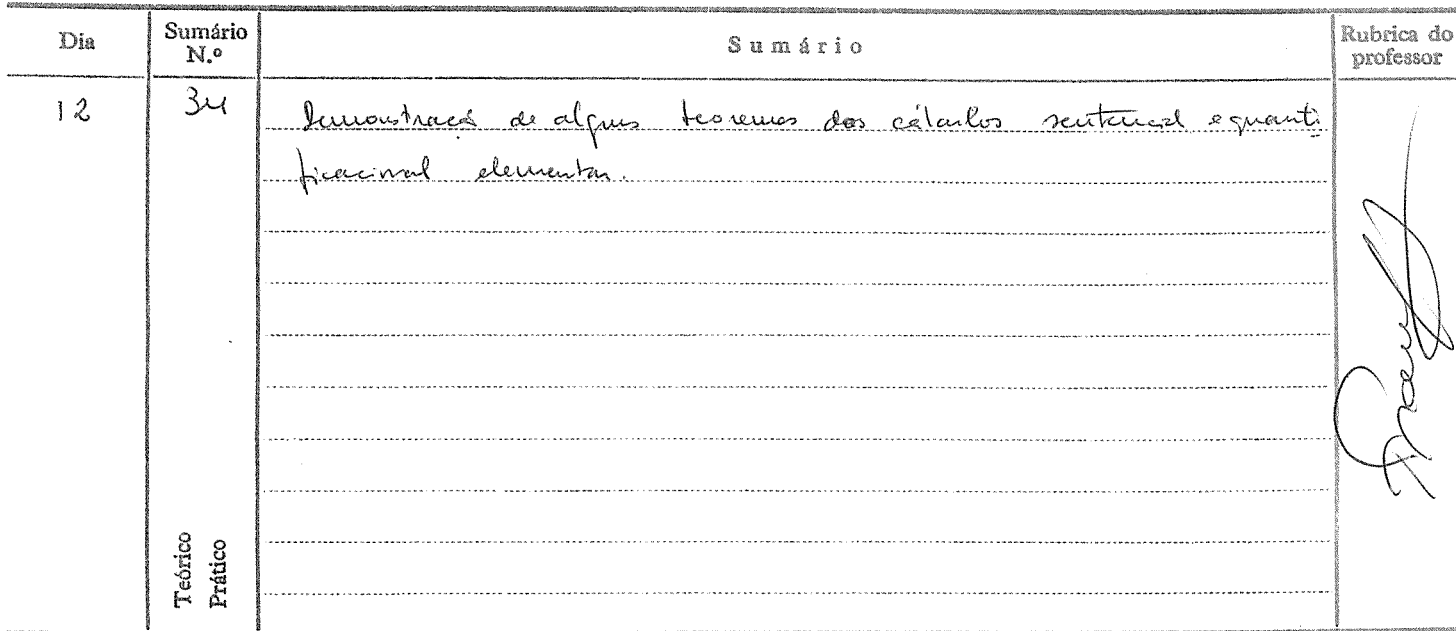 Dia
Sumário N.º
Sumário
Rubrica do professor
12
34
Demonstração de alguns teoremas dos cálculos sentencial e quanti-
ficacional elementar.
Teórico
Prático